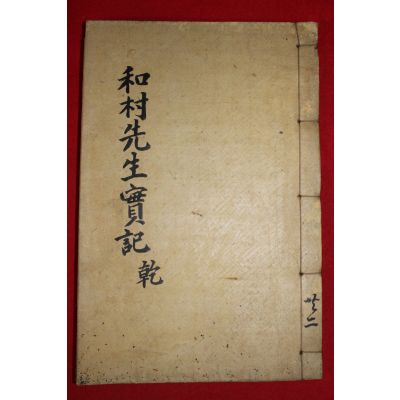 和村先生實記 乾
共二